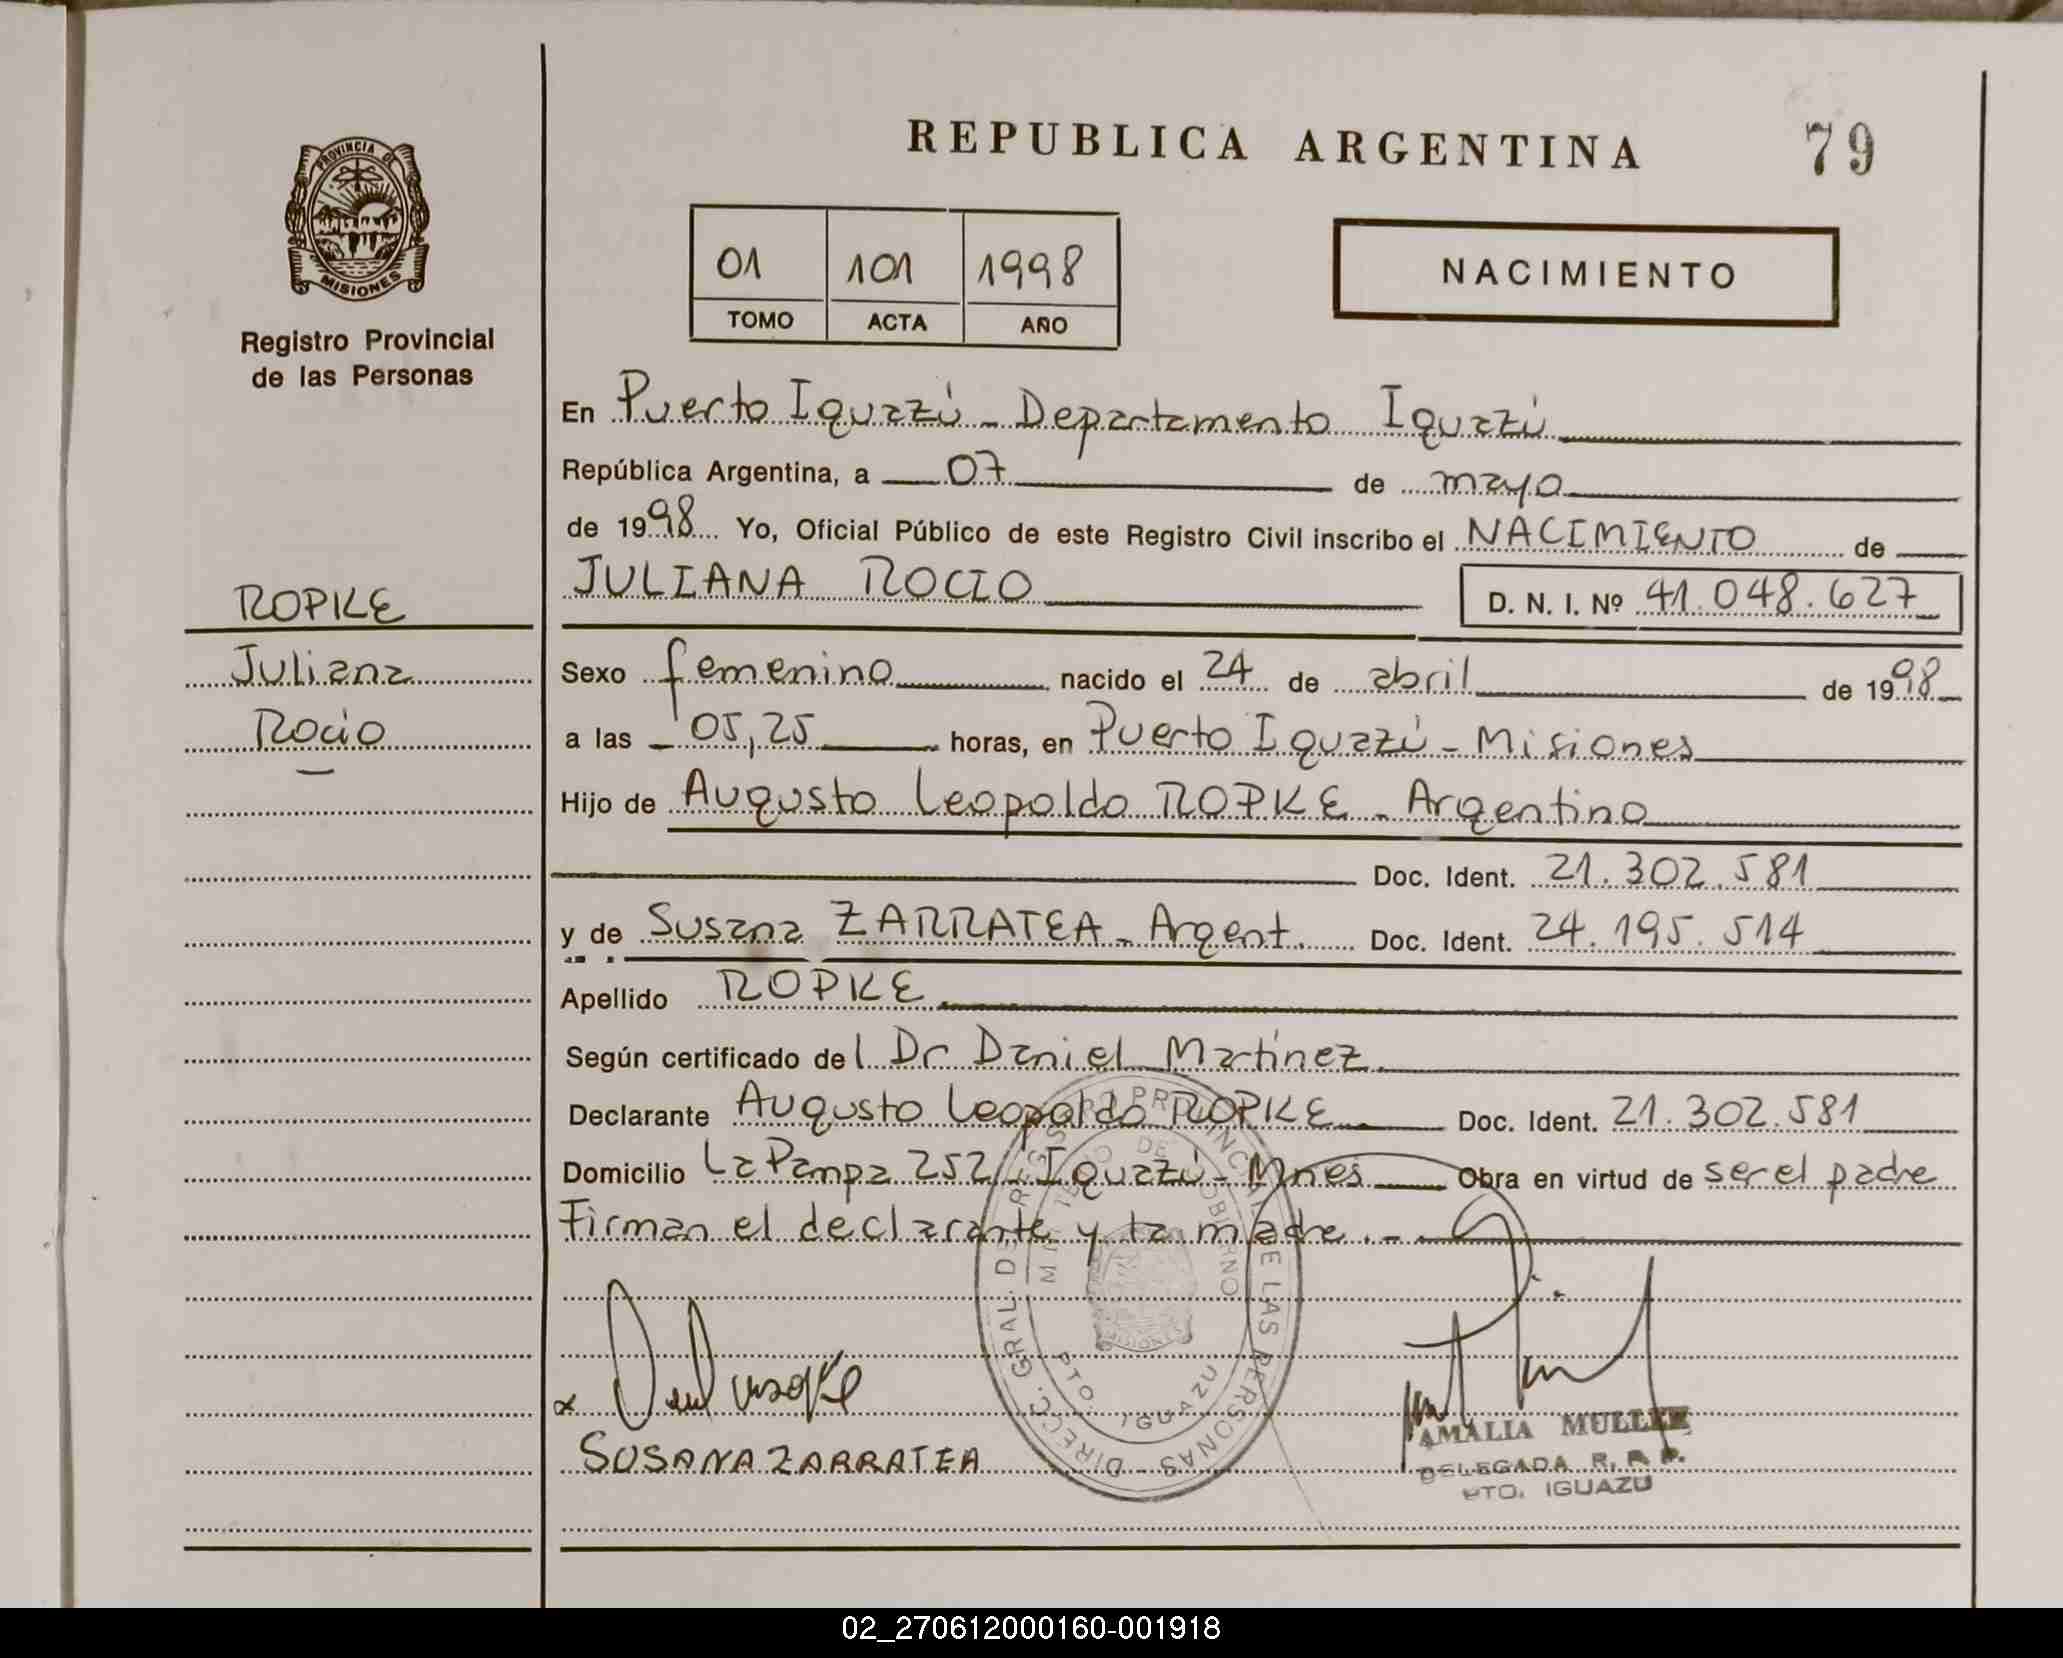 REPUBLICA ARGENTINA
79
PROVINCIA DE
MISIONES
Registro Provincial
de las Personas
01 101 1998
TOMO ACTA AÑO
NACIMIENTO
En Puerto Iguazú - Departamento Iguazú
República Argentina, a 07 de mayo
de 1998 Yo, Oficial Público de este Registro Civil inscribo el NACIMIENTO de
JULIANA ROCIO D. N. I. Nº 41.048.627
ROPKE
Juliana
Rocio
Sexo femenino nacido el 24 de abril de 1998
a las 05,25 horas, en Puerto Iguazú - Misiones
Hijo de Augusto Leopoldo ROPKE - Argentino
Doc. Ident. 21.302.581
y de Susana ZARRATEA - Argent. Doc. Ident. 24.195.514
Apellido ROPKE
Según certificado del Dr Daniel Martínez.
Declarante Augusto Leopoldo ROPKE Doc. Ident. 21.302.581
Domicilio La Pampa 252 Iguazú - Mnes Obra en virtud de ser el padre
Firman el declarante y la madre.-
DIRECC. GRAL. DE REGISTRO PROVINCIAL DE LAS PERSONAS
MINISTERIO DE GOBIERNO
MISIONES
PTO. IGUAZU
SUSANA ZARRATEA
AMALIA MULLER
DELEGADA R. P. P.
PTO. IGUAZU
02_270612000160-001918